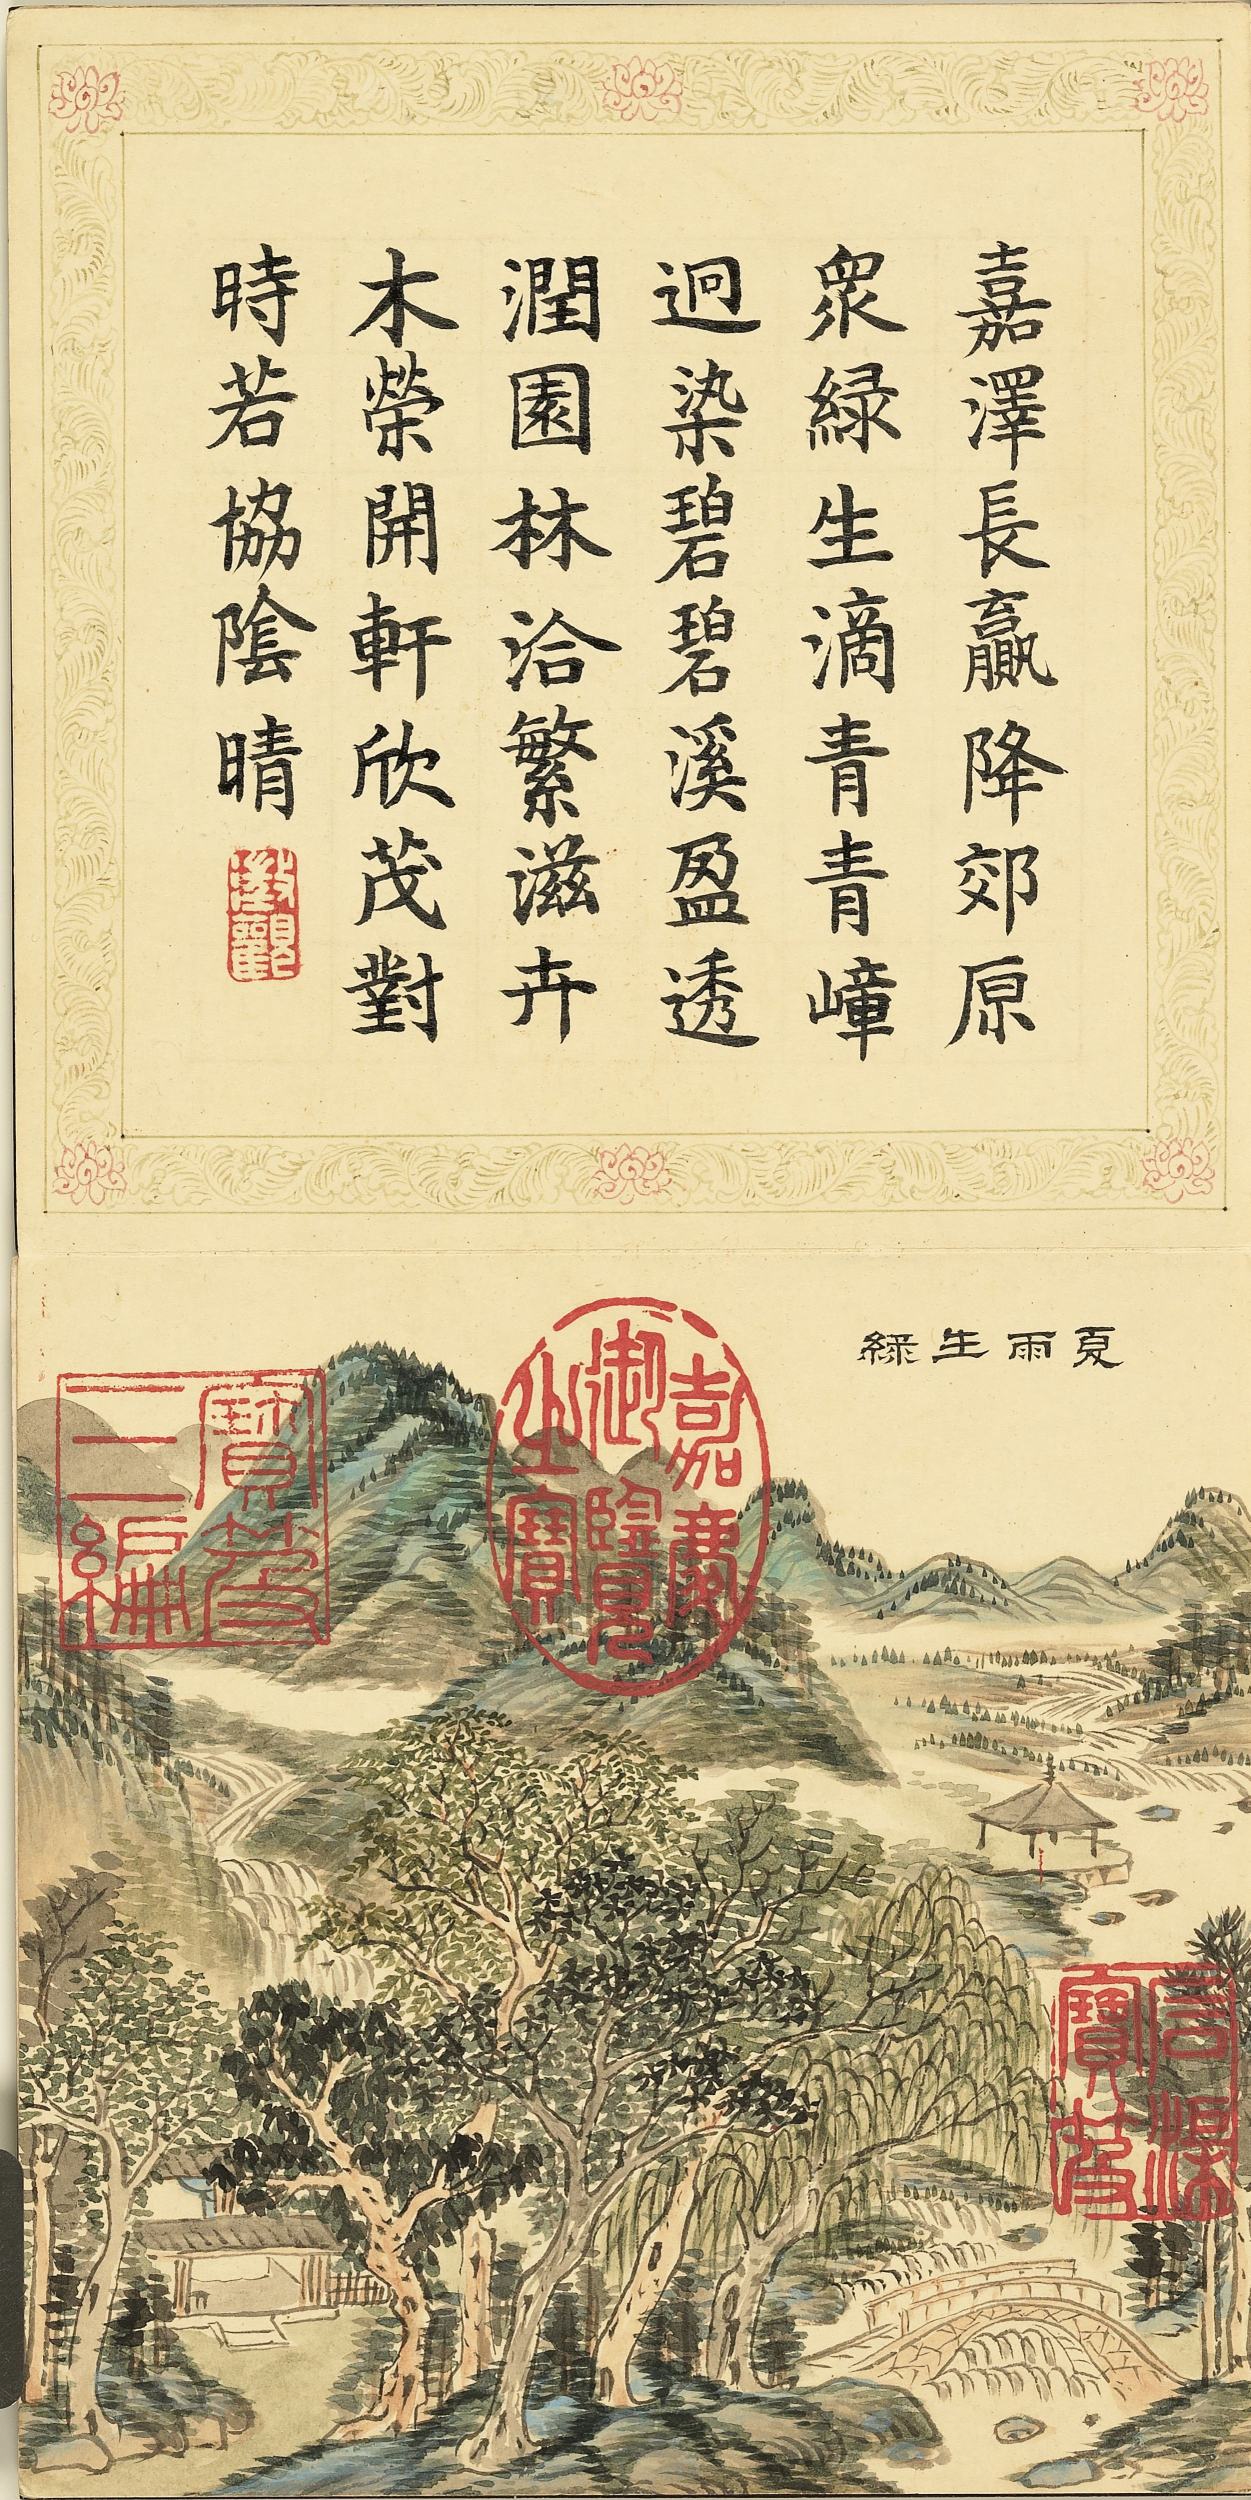 嘉澤長贏降郊原
衆緑生滴青青嶂
迥染碧碧溪盈透
潤園林洽繁滋卉
木榮開軒欣茂對
時若協陰晴
夏雨生緑
嘉慶
御覽
之寶
寶笈
三編
宣統
寶笈